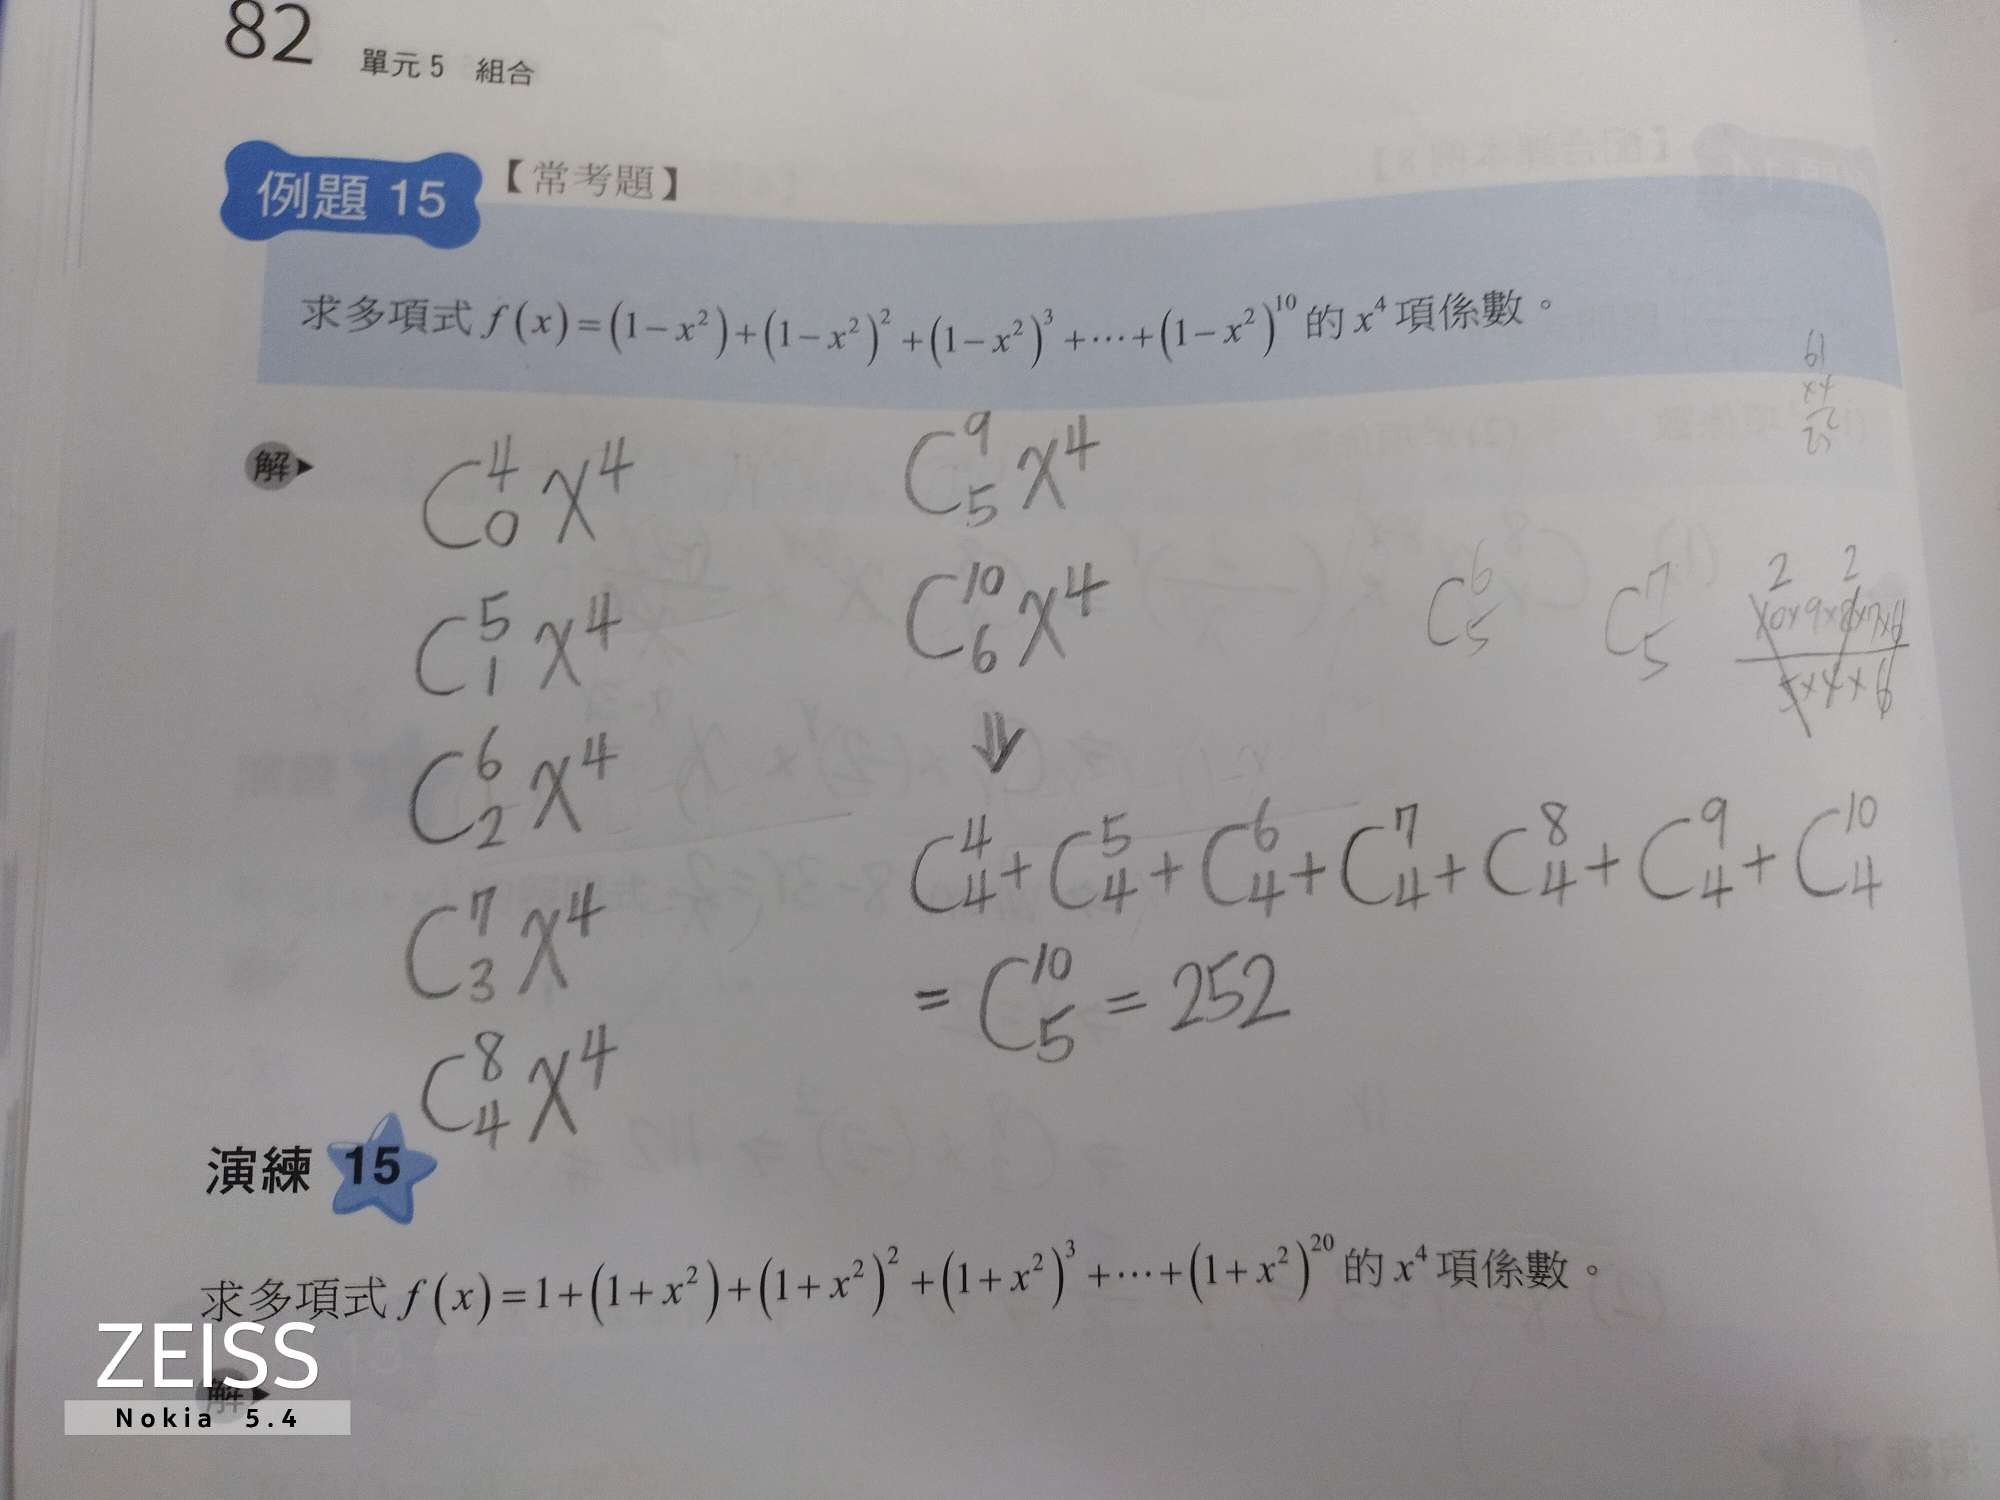 82 單元 5 組合
例題 15 【常考題】
求多項式 f(x)=(1−x²)+(1−x²)²+(1−x²)³+⋯+(1−x²)¹⁰ 的 x⁴ 項係數。
解
C⁴₀ X⁴
C⁵₁ X⁴
C⁶₂ X⁴
C⁷₃ X⁴
C⁸₄ X⁴
C⁹₅ X⁴
C¹⁰₆ X⁴
⇓
C⁴₄+C⁵₄+C⁶₄+C⁷₄+C⁸₄+C⁹₄+C¹⁰₄
=C¹⁰₅=252
C⁶₅ C⁷₅
2 2
演練 15
求多項式 f(x)=1+(1+x²)+(1+x²)²+(1+x²)³+⋯+(1+x²)²⁰ 的 x⁴ 項係數。
解
ZEISS
Nokia 5.4